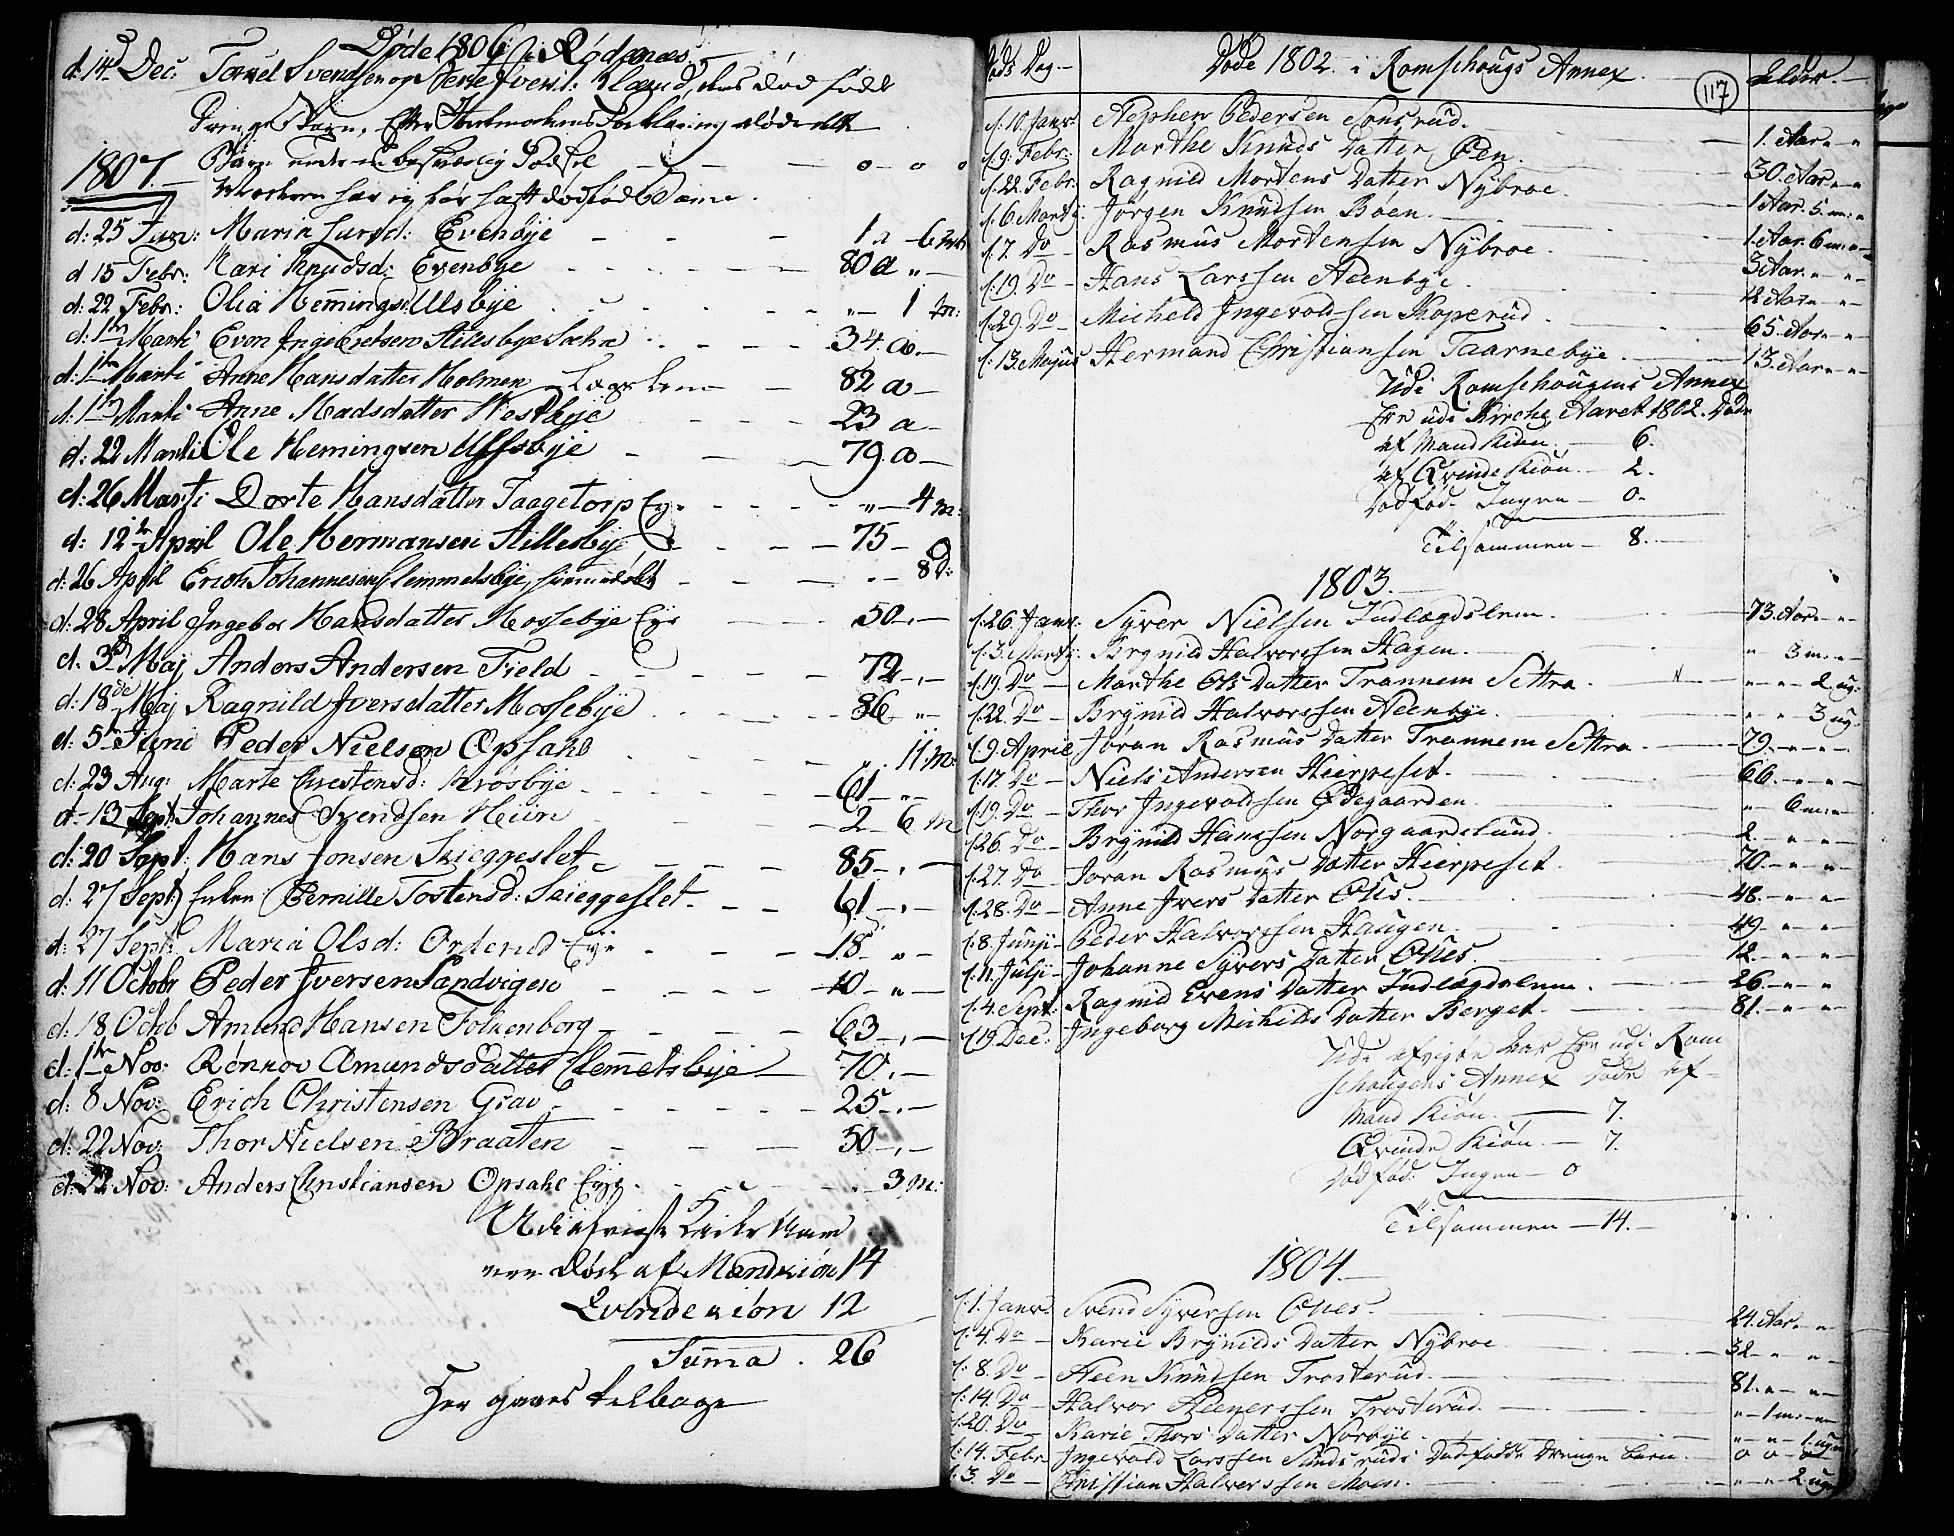 Døde 1806 i Rødenæs
d: 14 Dec. Svendsen og
Barn
1807.
d: 25 Jan: Maria Larsd: Evenbÿe 1 a 6 m
d 15 Febr: Kari Knudsd: Evenbÿe 80 a
d: 22 Febr: Olia Hemingsd Ulsbÿe 1 m:
d: 1 Marti Even Ingebretsen Stillesbÿe 34. a.
d: 1 Marti Anne Hansdatter Holmen 82 a
d: 1 Marti Anne Madsdatter Westbÿe 23 a
d: 22 Marti Ole Hemingsen Ulfsbÿe 79. a
d: 26 Marti Dorte Hansdatter Taagetorp Eÿe 4 m:
d: 12 April Ole Hermansen Stillesbÿe 75
d: 26 April Erich Johannesen Clemmetsbÿe, 8 D:
d: 28 April Ingebor Hansdatter Mossebÿe Eÿe 50
d: 3 Maj Anders Andersen Field 72
d: 18 de Maj Ragnild Iversdatter Mossebÿe 86
d: 5 Juni Peder Nielsen Opsahl 11 m:
d: 23 Aug: Marte Chrestensd: Krosbÿe 61
d. 13 Sept: Johannes Svendsen Heien 2 6 m
d: 20 Sept: Hans Jonsen Skieggeslet 85
d: 27 Sept: Enken Pernille Tostensd: Skieggeslet 61
d: 27 Sept: Maria Olsd: Orderud Eÿe 18
d: 11 Octobr Peder Iversen Sandvigen 40
d: 18 Octb Amund Hansen Folkenborg 63
d: 1 Nov: Rønnov Amundsdatter Clemmetsbÿe 70
d: 8 Nov: Erich Christensen Grav 25
d: 22 Nov: Thor Nielsen Braaten 50
d: 22 Nov: Anders Christiansen Opsahl Eÿe 3 m:
Udi afvigte Kirke
Døde af Mandkiøn 14
Qvindekiøn 12
Suma . 26
Her gaaes tilbage
Døds Dag Døde 1802. i Romschougs Annex Alder.
117
d. 10. Janr. Stephen Pedersen Sonsrud. 1. Aar
d. 9. Febr. Marthe Knuds Datter Øen. 30. Aar
d. 22. Febr. Ragnild Mortens Datter Nÿbroe 1 Aar. 5 m:
d. 6 Martÿ Jörgen Knudsen Böen. 1. Aar. 6 m:
d. 7. Do Rasmus Mortensen Nÿbroe 3 Aar.
d. 19. Do Hans Larssen Steenbÿe 2 Aar
d. 29. Do Micheld Ingevoldsen Koperud 65. Aar
d. 13. Majus Hermand Christiansen Taarnebÿe 13. Aar
Udi Romschougens Annex
Ere udi Kirche Aaret 1802. Døde
af Mand Kiøn. 6.
af Qvinde Kiøn. 2.
Dødfød. Ingen 0.
Tilsammen 8.
1803.
d. 26. Janr. Sÿver Nielsen Indlægdslem. 73. Aar
d. 3. Martÿ. Brÿnild Halvorssen Hagen. 3 m.
d. 19. Do Marthe Ols Datter Trannem Settra. 2. ug:
d. 22. Do Brÿnild Halvorssen Steenbÿe 3 ug.
d. 9. April Joran Rasmus Datter Trannem Settra 79.
d. 17. Do Niels Andersen Kierpeset. 66.
d. 19. Do Thor Ingevoldsen Ødegaarden. 6 m.
d. 26. Do Brÿnild Hanssen Norgaardslund. 2
d. 27. Do Joran Rasmus Datter Kierpeset. 70.
d. 28. Do Anne Ivers Datter Otties. 48.
d. 8. Junji Peder Halvorssen Haugen. 49
d. 11. Julji Johanne Sÿvers Datter Otties. 12.
d. 4. Sept. Ragnild Evens Datter Indlægdslem. 26.
d. 19 Dec. Ingeborg Michilds Datter Berget. 81.
Udi afvigte Aar Ere udi Rom
schougens Annex Døde af
Mand Kiøn. 7.
Qvinde Kiøn. 7.
Dødfød: Ingen 0
Tilsammen 14.
1804.
d. 1. Janr. Svend Sÿversen Otties. 24. Aar
d. 4. Do Karie Brÿnilds Datter Nÿbroe 32
d. 8. Do Steen Knudsen Trosterud. 81.
d. 14. Do Halvor Steenerssen Trosterud. 1 m:
d. 20. Do Karie Thors Datter Norbÿe. 1. uge
d. 14. Febr. Ingevold Larssen Sundsruds Dødfødde Drenge Barn 0 0 0
d. 3. Do Christian Halvorssen Moen. 2 uge